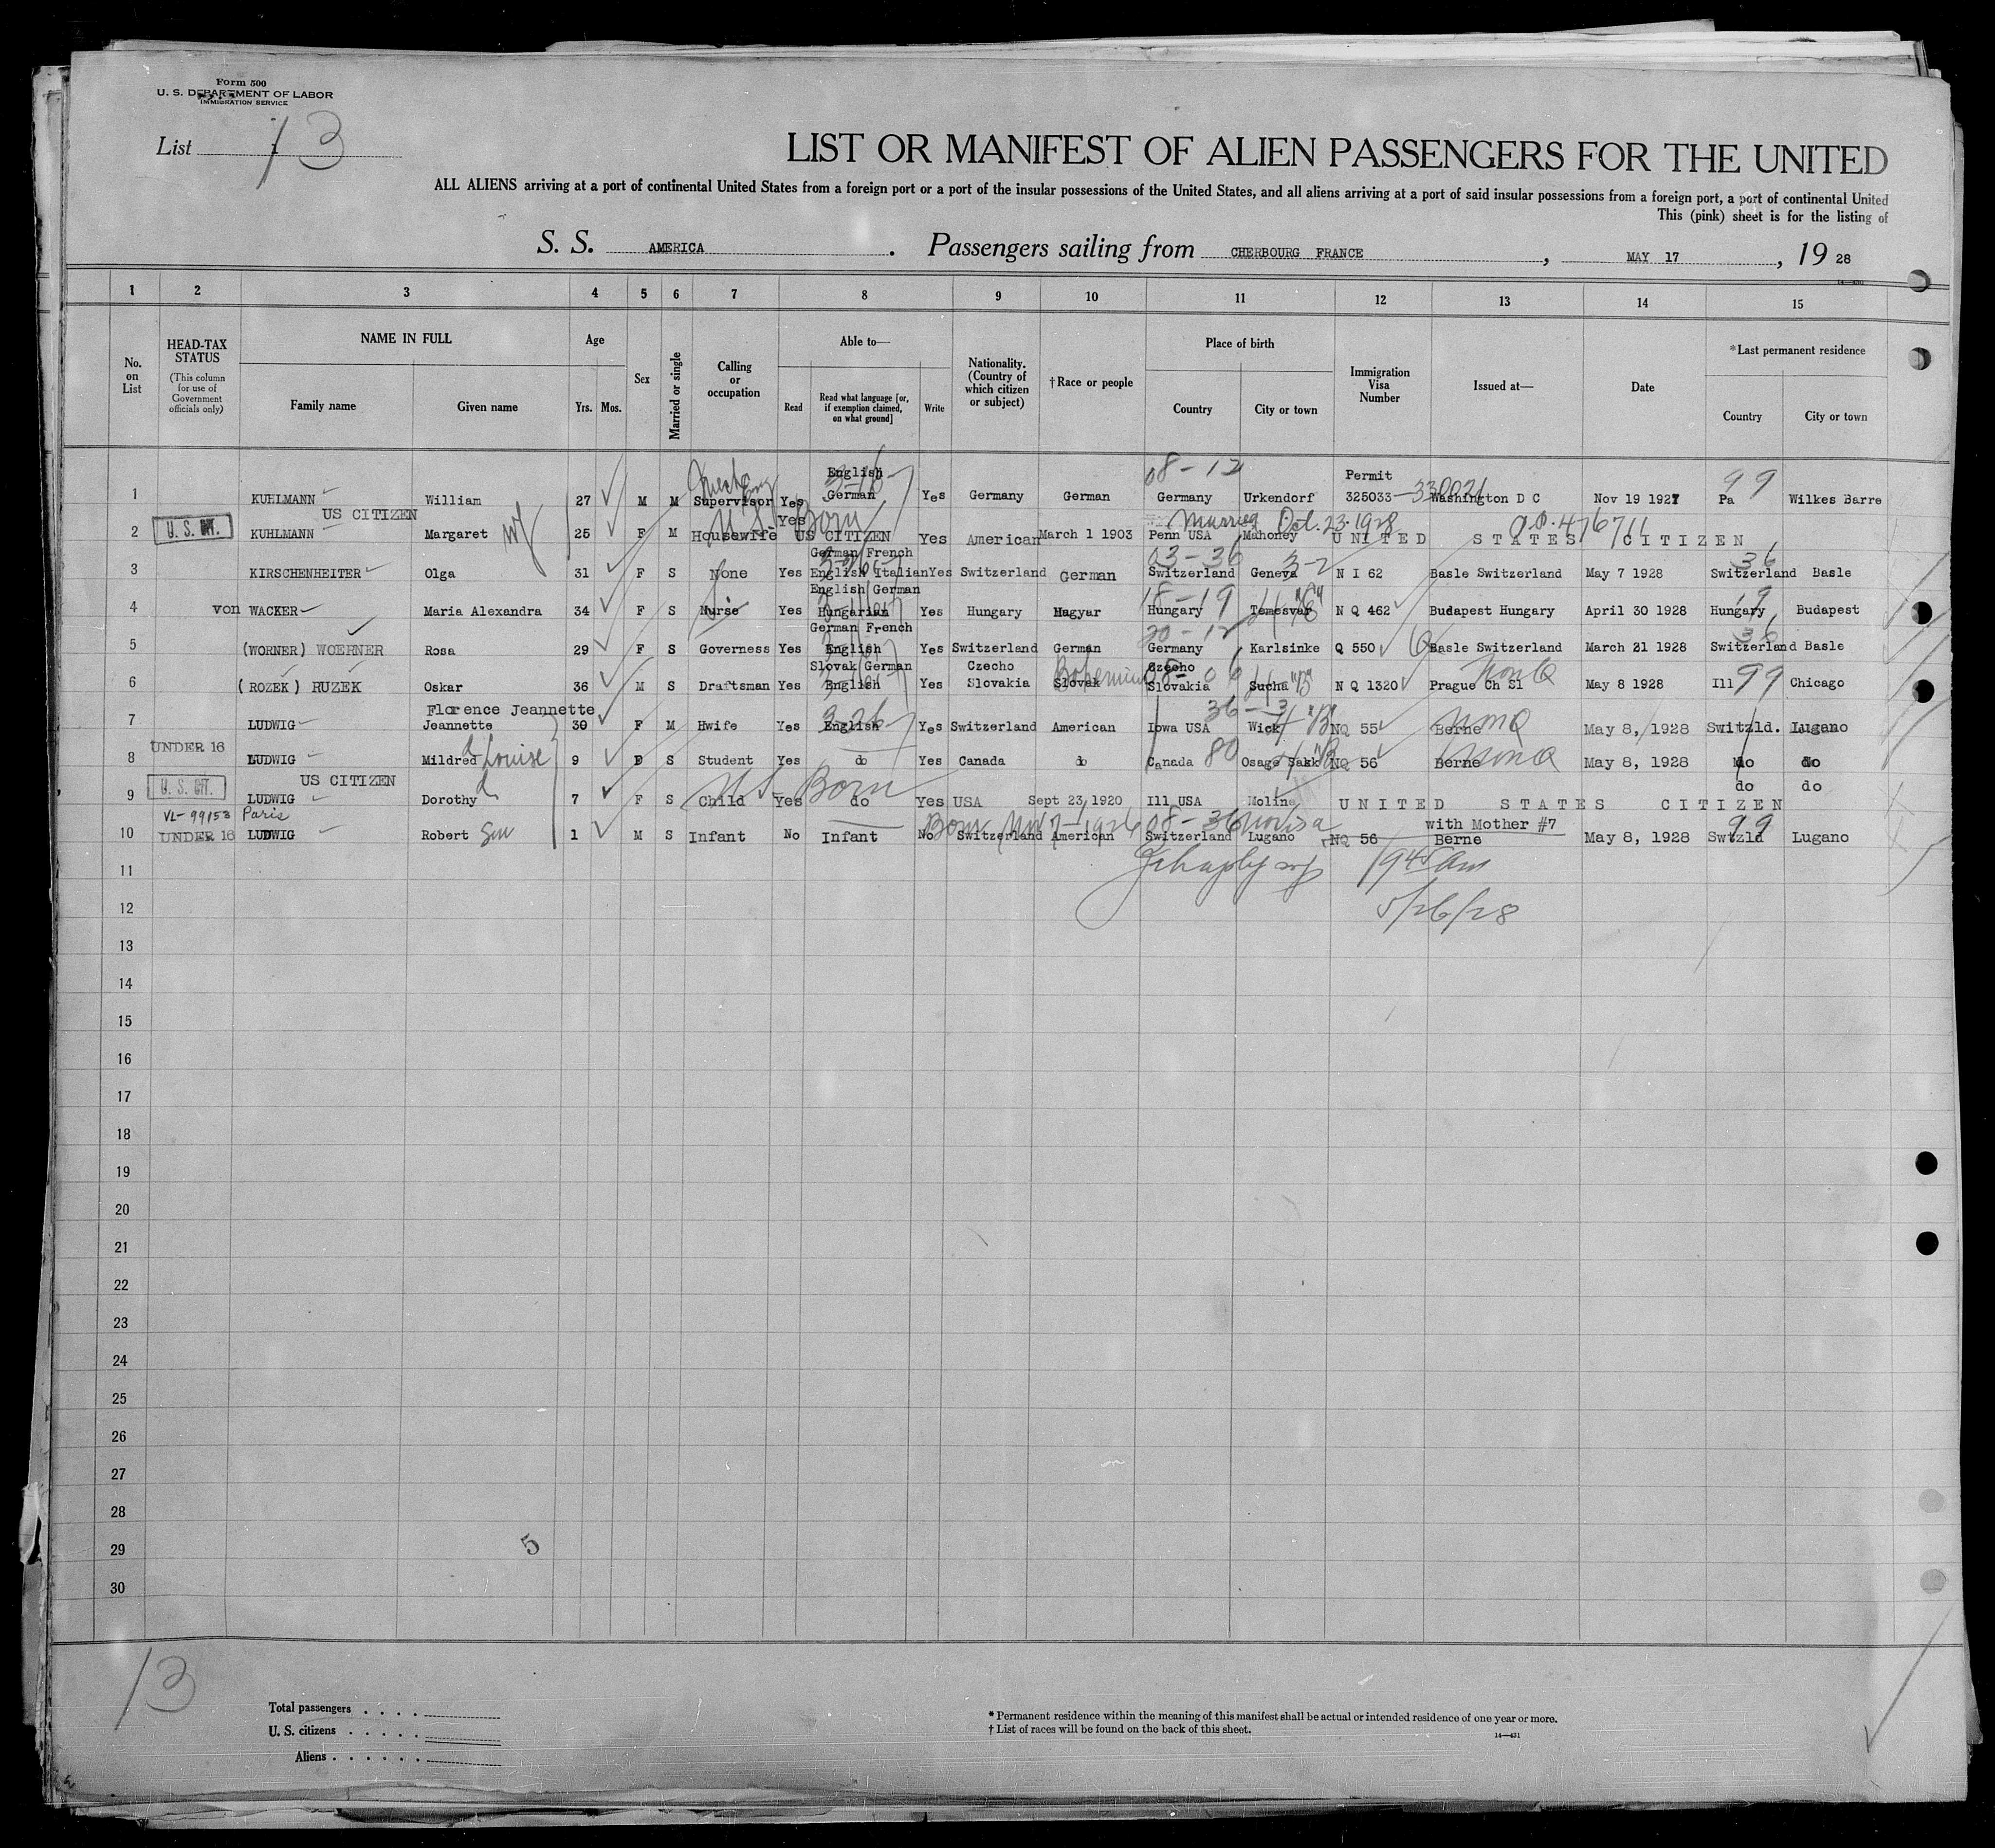 Form 500
U. S. DEPARTMENT OF LABOR
IMMIGRATION SERVICE
List 1 13
LIST OR MANIFEST OF ALIEN PASSENGERS FOR THE UNITED
ALL ALIENS arriving at a port of continental United States from a foreign port or a port of the insular possessions of the United States, and all aliens arriving at a port of said insular possessions from a foreign port, a port of continental United
This (pink) sheet is for the listing of
S. S. AMERICA. Passengers sailing from CHERBOURG FRANCE, MAY 17, 19 28
1 2 3 4 5 6 7 8 9 10 11 12 13 14 15
No. on List
HEAD-TAX STATUS
(This column for use of Government officials only)
NAME IN FULL
Family name Given name
Age
Yrs. Mos.
Sex
Married or single
Calling or occupation
Able to—
Read Read what language [or, if exemption claimed, on what ground] Write
Nationality. (Country of which citizen or subject)
†Race or people
Place of birth
Country City or town
Immigration Visa Number
Issued at—
Date
*Last permanent residence
Country City or town
English 08-12 Permit 99
1 KUHLMANN William 27 M M Supervisor Yes German Yes Germany German Germany Urkendorf 325033-330021 Washington D C Nov 19 1927 Pa Wilkes Barre
US CITIZEN U.S. Born Yes Married Oct. 23-1928 476711
2 U. S. CIT. KUHLMANN Margaret wf 25 F M Housewife US CITIZEN Yes American March 1 1903 Penn USA Mahoney UNITED STATES CITIZEN
German French 03-36 3-2 36
3 KIRSCHENHEITER Olga 31 F S None Yes English Italian Yes Switzerland German Switzerland Geneva N I 62 Basle Switzerland May 7 1928 Switzerland Basle
English German 18-19 19
4 von WACKER Maria Alexandra 34 F S Nurse Yes Hungarian Yes Hungary Magyar Hungary Temesvar N Q 462 Budapest Hungary April 30 1928 Hungary Budapest
German French 20-12 36
5 (WORNER) WOERNER Rosa 29 F S Governess Yes English Yes Switzerland German Germany Karlsinke Q 550 Basle Switzerland March 21 1928 Switzerland Basle
Slovak German Czecho Bohemian Czecho 08-06 Non Q 99
6 (ROZEK) RUZEK Oskar 36 M S Draftsman Yes English Yes Slovakia Slovak Slovakia Sucha N Q 1320 Prague Ch Sl May 8 1928 Ill Chicago
Florence Jeannette 36-13
7 LUDWIG Jeannette 30 F M Hwife Yes English Yes Switzerland American Iowa USA Wick NQ 55 Berne Non Q May 8, 1928 Switzld. Lugano
UNDER 16
8 LUDWIG Mildred Louise d 9 F S Student Yes do Yes Canada do Canada 80 Osage Sakk NQ 56 Berne Non Q May 8, 1928 do do
US CITIZEN d U.S. Born do do
9 U. S. CIT. LUDWIG Dorothy 7 F S Child Yes do Yes USA Sept 23, 1920 Ill USA Moline UNITED STATES CITIZEN
VL-99153 Paris Born Nov 7-1926 08-36 no visa with Mother #7 99
10 UNDER 16 LUDWIG Robert Son 1 M S Infant No Infant No Switzerland American Switzerland Lugano NQ 56 Berne May 8, 1928 Swtzld Lugano
11 945 am
12 5/26/28
13
14
15
16
17
18
19
20
21
22
23
24
25
26
27
28
29 5
30
13
Total passengers . . . .
U. S. citizens . . . . .
Aliens . . . . . .
* Permanent residence within the meaning of this manifest shall be actual or intended residence of one year or more.
† List of races will be found on the back of this sheet.
14—431